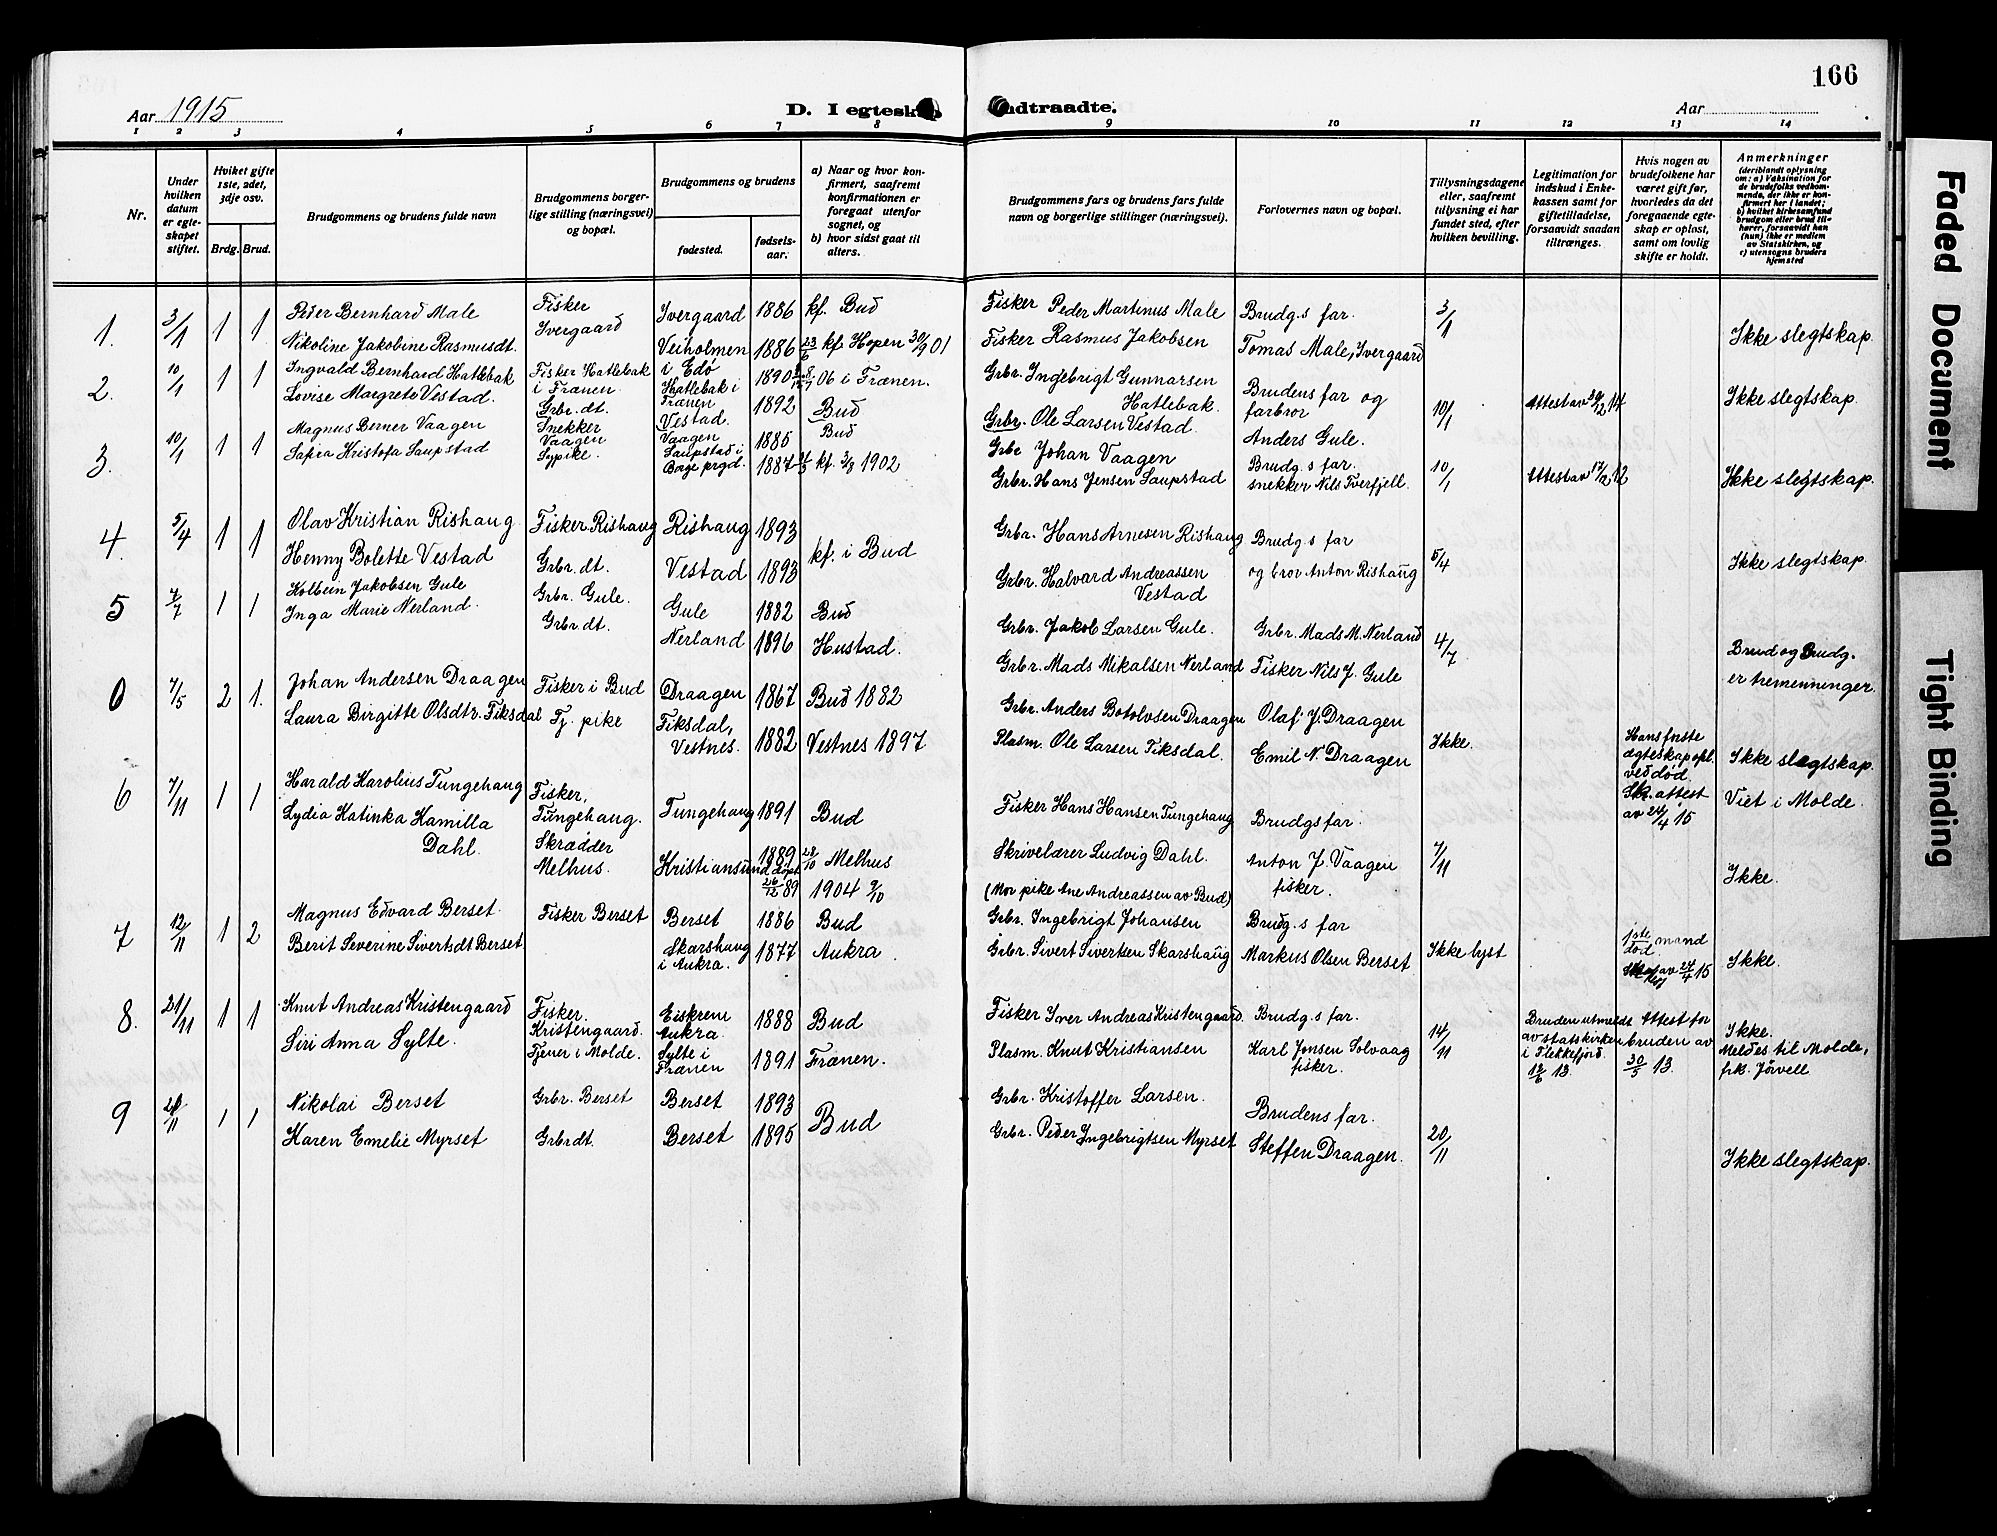 166
Aar 1915
D. I egteskap indtraadte.
Aar
1 2 3 4 5 6 7 8 9 10 11 12 13 14
Nr.
Under hvilken datum er egteskapet stiftet.
Hviket gifte 1ste, 2det, 3dje osv.
Brdg. Brud.
Brudgommens og brudens fulde navn
Brudgommens borgerlige stilling (næringsvei) og bopæl.
Brudgommens og brudens
fødested.
fødselsaar.
a) Naar og hvor konfirmert, saafremt konfirmationen er foregaat utenfor sognet, og
b) hvor sidst gaat til alters.
Brudgommens fars og brudens fars fulde navn og borgerlige stillinger (næringsvei).
Forlovernes navn og bopæl.
Tillysningsdagene eller, saafremt tillysning ei har fundet sted, efter hvilken bevilling.
Legitimation for indskud i Enkekassen samt for giftetilladelse, forsaavidt saadan tiltrænges.
Hvis nogen av brudefolkene har været gift før, hvorledes da det foregaaende egteskap er opløst, samt om lovlig skifte er holdt.
Anmerkninger (deriblandt oplysning om: a) Vaksination for de brudefolks vedkommende, der ikke er konfirmert her i landet; b) hvilket kirkesamfund brudgom eller brud tilhører, forsaavidt han (hun) ikke er medlem av Statskirken, og c) utensogns bruders hjemsted
1. 3/1 1 1 Peder Bernhard Male Fisker Ivergaard Ivergaard 1886 kf. Bud Fisker Peder Martinus Male Brudg.s far. 3/1
Nikoline Jakobine Rasmusdt. Veiholmen i Edö 1886 23/6 kf Hopen 30/9 01 Fisker Rasmus Jakobsen Tomas Male, Ivergaard Ikke slegtskap.
2. 10/1 1 1 Ingvald Bernhard Hatlebak Fisker Hatlebak i Frænen. Hatlebak i Frænen 1890 8/7 06 i Frænen. Grbr. Ingebrigt Gunnarsen Hatlebak. Brudens far og farbror 10/1 Attest av 29/12 14 Ikke slegtskap.
Lovise Margrete Vestad. Grbr. dt. Vestad. 1892 Bud Grbr. Ole Larsen Vestad. Anders Gule.
3. 10/1 1 1 Magnus Berner Vaagen Snekker Vaagen Vaagen 1885 Bud Grbr Johan Vaagen Brudg.s far. 10/1 Attest av 17/12 12 Ikke slegtskap.
Safia Kristofa Saupstad Sypike. Saupstad i Borge prgd. 1887 kf. 3/8 1902 Grbr. Hans Jensen Saupstad snekker Nils Tverfjell.
4. 5/4 1 1 Olav Kristian Rishaug Fisker Rishaug Rishaug 1893 kf. i Bud Grbr. Hans Arnesen Rishaug Brudg.s far 5/4 Ikke slegtskap.
Henny Bolette Vestad Grbr. dt. Vestad 1893 Grbr. Halvard Andreassen Vestad og bror Anton Rishaug
5 4/7 1 1 Kolbein Jakobsen Gule Grbr. Gule. Gule 1882 Bud Grbr. Jakob Larsen Gule. Grbr. Mads M. Nerland 4/7 Brud og Brudg. er tremenninger.
Inga Marie Nerland. Grbr. dt. Nerland 1896 Hustad. Grbr. Mads Mikalsen Nerland Fisker Nils J. Gule
0 7/5 2 1. Johan Andersen Draagen Fisker i Bud Draagen 1867 Bud 1882 Grbr. Anders Botolvsen Draagen Olaf J. Draagen Ikke. Hans første ægteskap opl. ved död. Sk. attest av 24/4 15 Ikke slegtskap. Viet i Molde.
Laura Birgitte Olsdtr. Fiksdal Tj. pike Fiksdal, Vestnes. 1882 Vestnes 1897 Plasm. Ole Larsen Fiksdal. Emil N. Draagen
6 7/11 1 1 Harald Karolius Tungehaug Fisker, Tungehaug. Tungehaug 1891 Bud Fisker Hans Hansen Tungehaug Brudgs far. 7/11 Ikke.
Lydia Katinka Kamilla Dahl. Skrædder Melhus. Kristiansund 1889 döpt 26/12 89 28/10 Melhus 1904 9/10 Skrivelærer Ludvig Dahl. (Mor pike Ane Andreassen av Bud) Anton J. Vaagen fisker.
7 12/11 1 2 Magnus Edvard Berset. Fisker Berset Berset 1886 Bud Grbr. Ingebrigt Johansen Brudg.s far Ikke lyst 1ste mand död. av 27/4 15 Ikke.
Berit Severine Sivertsdt Berset Skarshaug i Aukra. 1877 Aukra Grbr. Sivert Sivertsen Skarshaug Markus Olsen Berset
8. 21/11 1 1 Knut Andreas Kristengaard Fisker. Kristengaard. Eiskrem Aukra. 1888 Bud Fisker Iver Andreas Kristengaard. Brudg.s far. 14/11 Bruden utmeldt av statskirken i Flekkefjord. 12/6 13. Attest for bruden av 30/5 13. Ikke. Meldes til Molde, frk. Jövell
Siri Anna Sylte. Tjener i Molde. Sylte i Frænen 1891 Frænen. Plasm. Knut Kristiansen Karl Jonsen Solvaag fisker.
9 20/11 1 1 Nikolai Berset Grbr. Berset Berset 1893 Bud Grbr. Kristoffer Larsen. Brudens far. 20/11 Ikke slegtskap.
Karen Emelie Myrset Grbrdt. Berset 1895 Grbr. Peder Ingebrigtsen Myrset Steffen Draagen.
Faded Document
Tight Binding